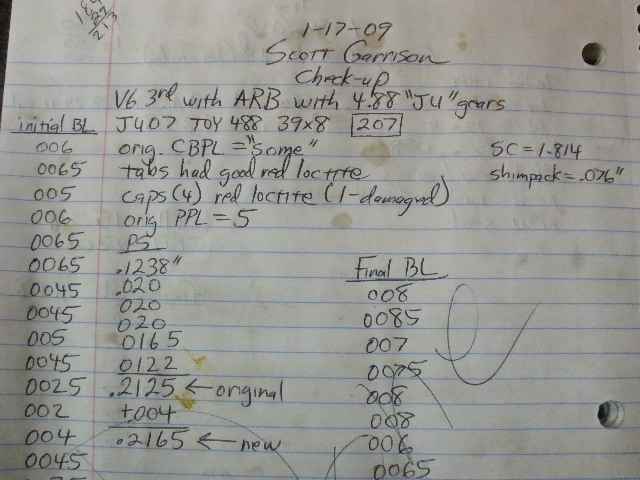 1-17-09
Scott Garrison
Check-up
V6 3rd with ARB with 4.88 "J4" gears
initial BL
J407 TOY 488 39x8 207
006
orig. CBPL = "some"
SC = 1.814
0065
tabs had good red loctite
shimpack = .076"
005
caps (4) red loctite (1-damaged)
006
orig PPL = 5
0065
PS
0065
.1238"
Final BL
0045
.020
008
0045
020
0085
020
005
0165
007
0045
0122
0075
0025
.2125 ← original
008
002
+.004
008
004
.2165 ← new
006
0045
0065